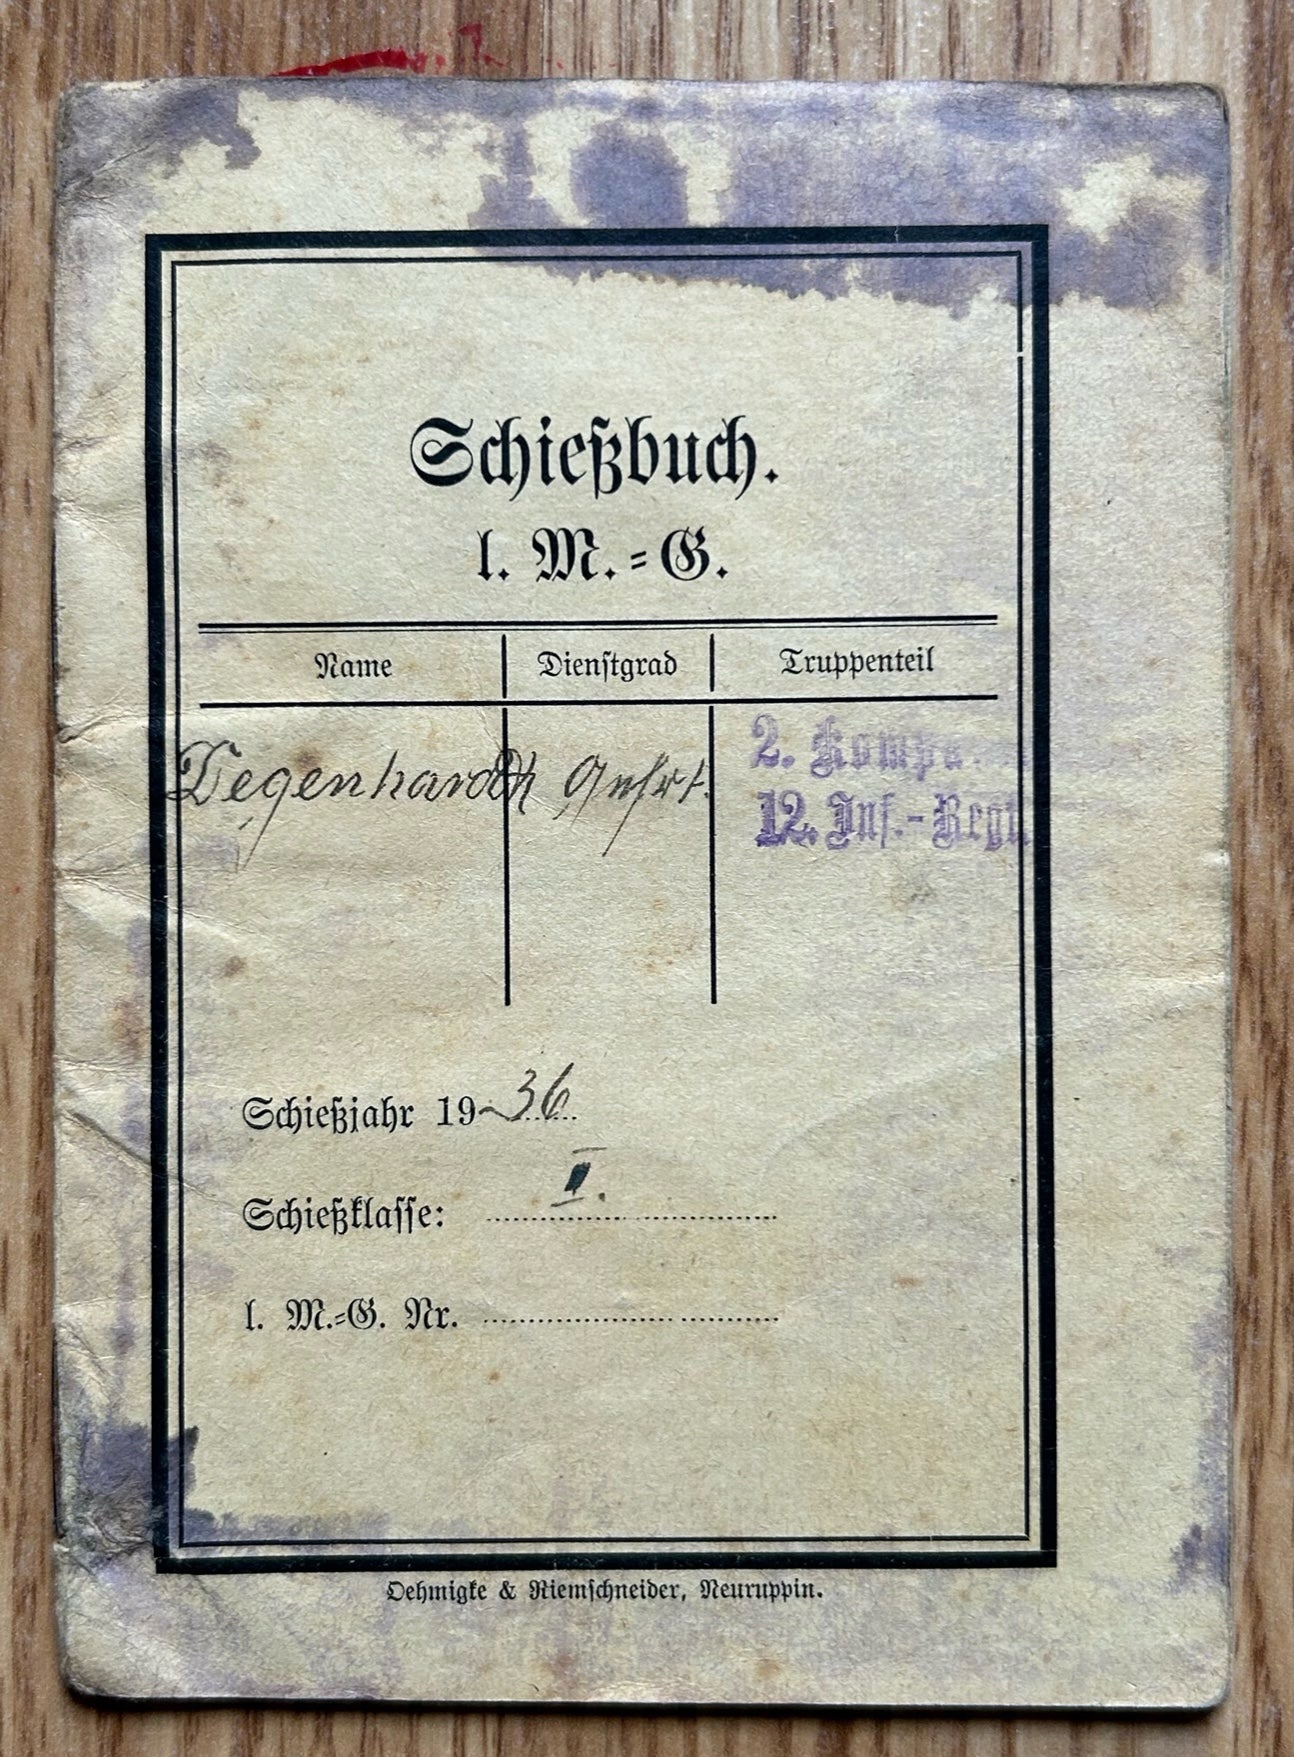 Schießbuch.
l. M.=G.
Name Dienstgrad Truppenteil
Degenhardt Gefrt. 2. Komp
12. Inf.-Regt.
Schießjahr 1936
Schießklasse: I.
l. M.=G. Nr.
Oehmigke & Riemschneider, Neuruppin.